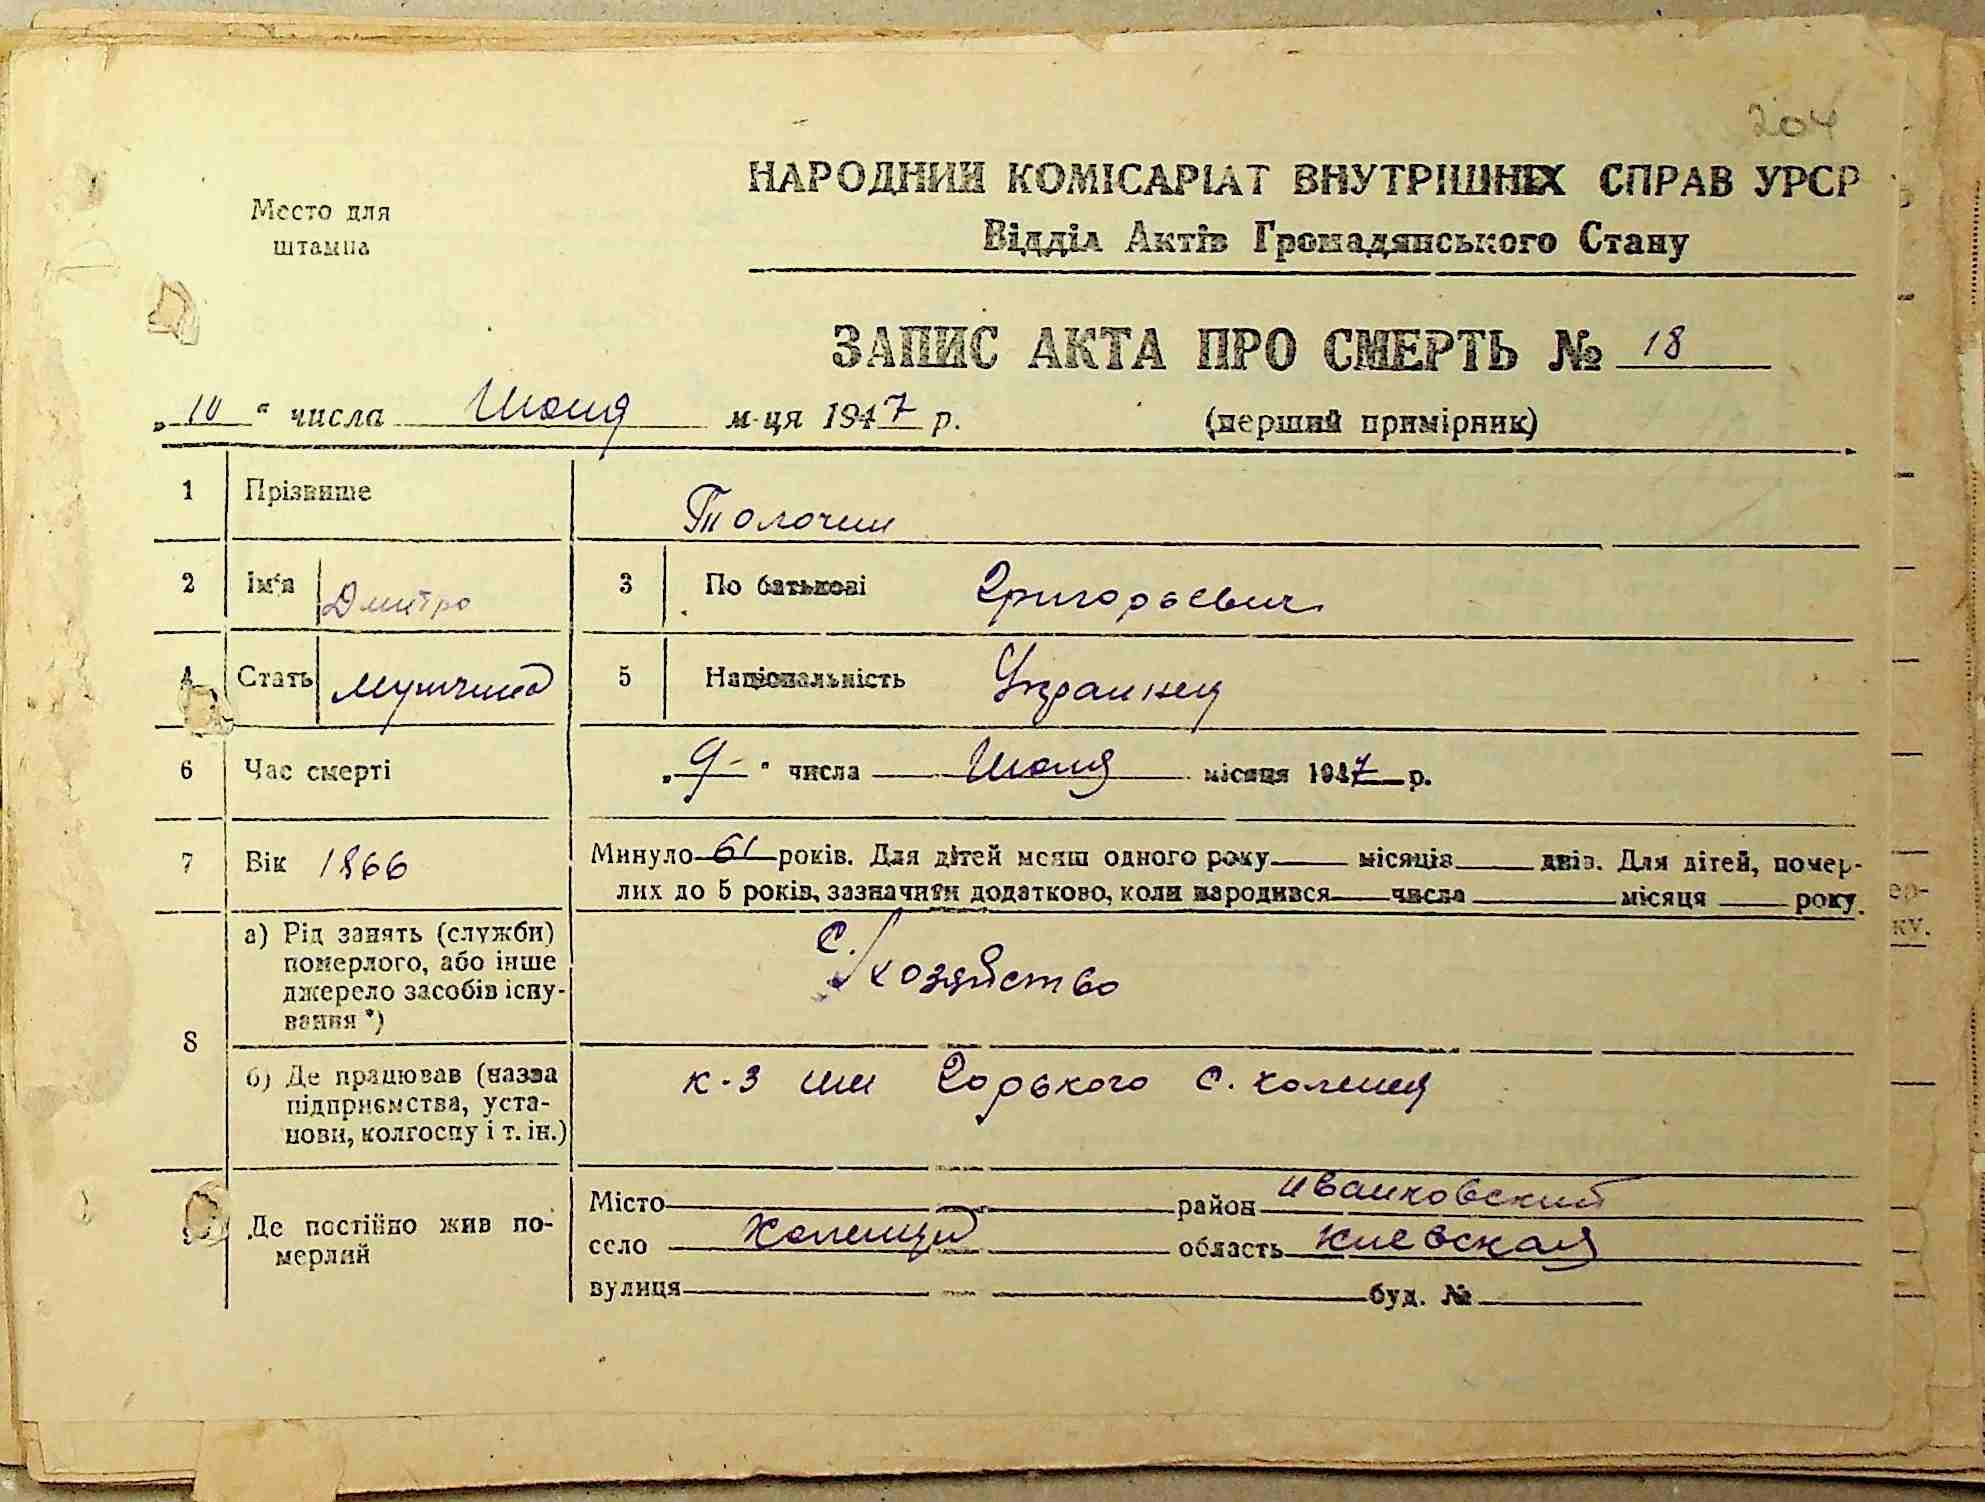 204
Место для
штампа
НАРОДНИЙ КОМІСАРІАТ ВНУТРІШНІХ СПРАВ УРСР
Відділ Актів Громадянського Стану
ЗАПИС АКТА ПРО СМЕРТЬ № 18
„10“ числа Июля м-ця 1947 р. (перший примірник)
1 Прізвище Толочин
2 Ім'я Дмитро 3 По батькові Григорьевич
4 Стать мужчина 5 Національність Украинец
6 Час смерті „9“ числа Июля місяця 1947 р.
7 Вік 1866 Минуло 61 років. Для дітей менш одного року місяців днів. Для дітей, помер-
лих до 5 років, зазначити додатково, коли народився числа місяця року.
8 а) Рід занять (служби)
померлого, або інше
джерело засобів існу-
вання *)
С./хозяйство
б) Де працював (назва
підприємства, уста-
нови, колгоспу і т. ін.)
к-з им Горького с.
9 Де постійно жив по-
мерлий
Місто район Иванковский
село область Киевская
вулиця буд. №